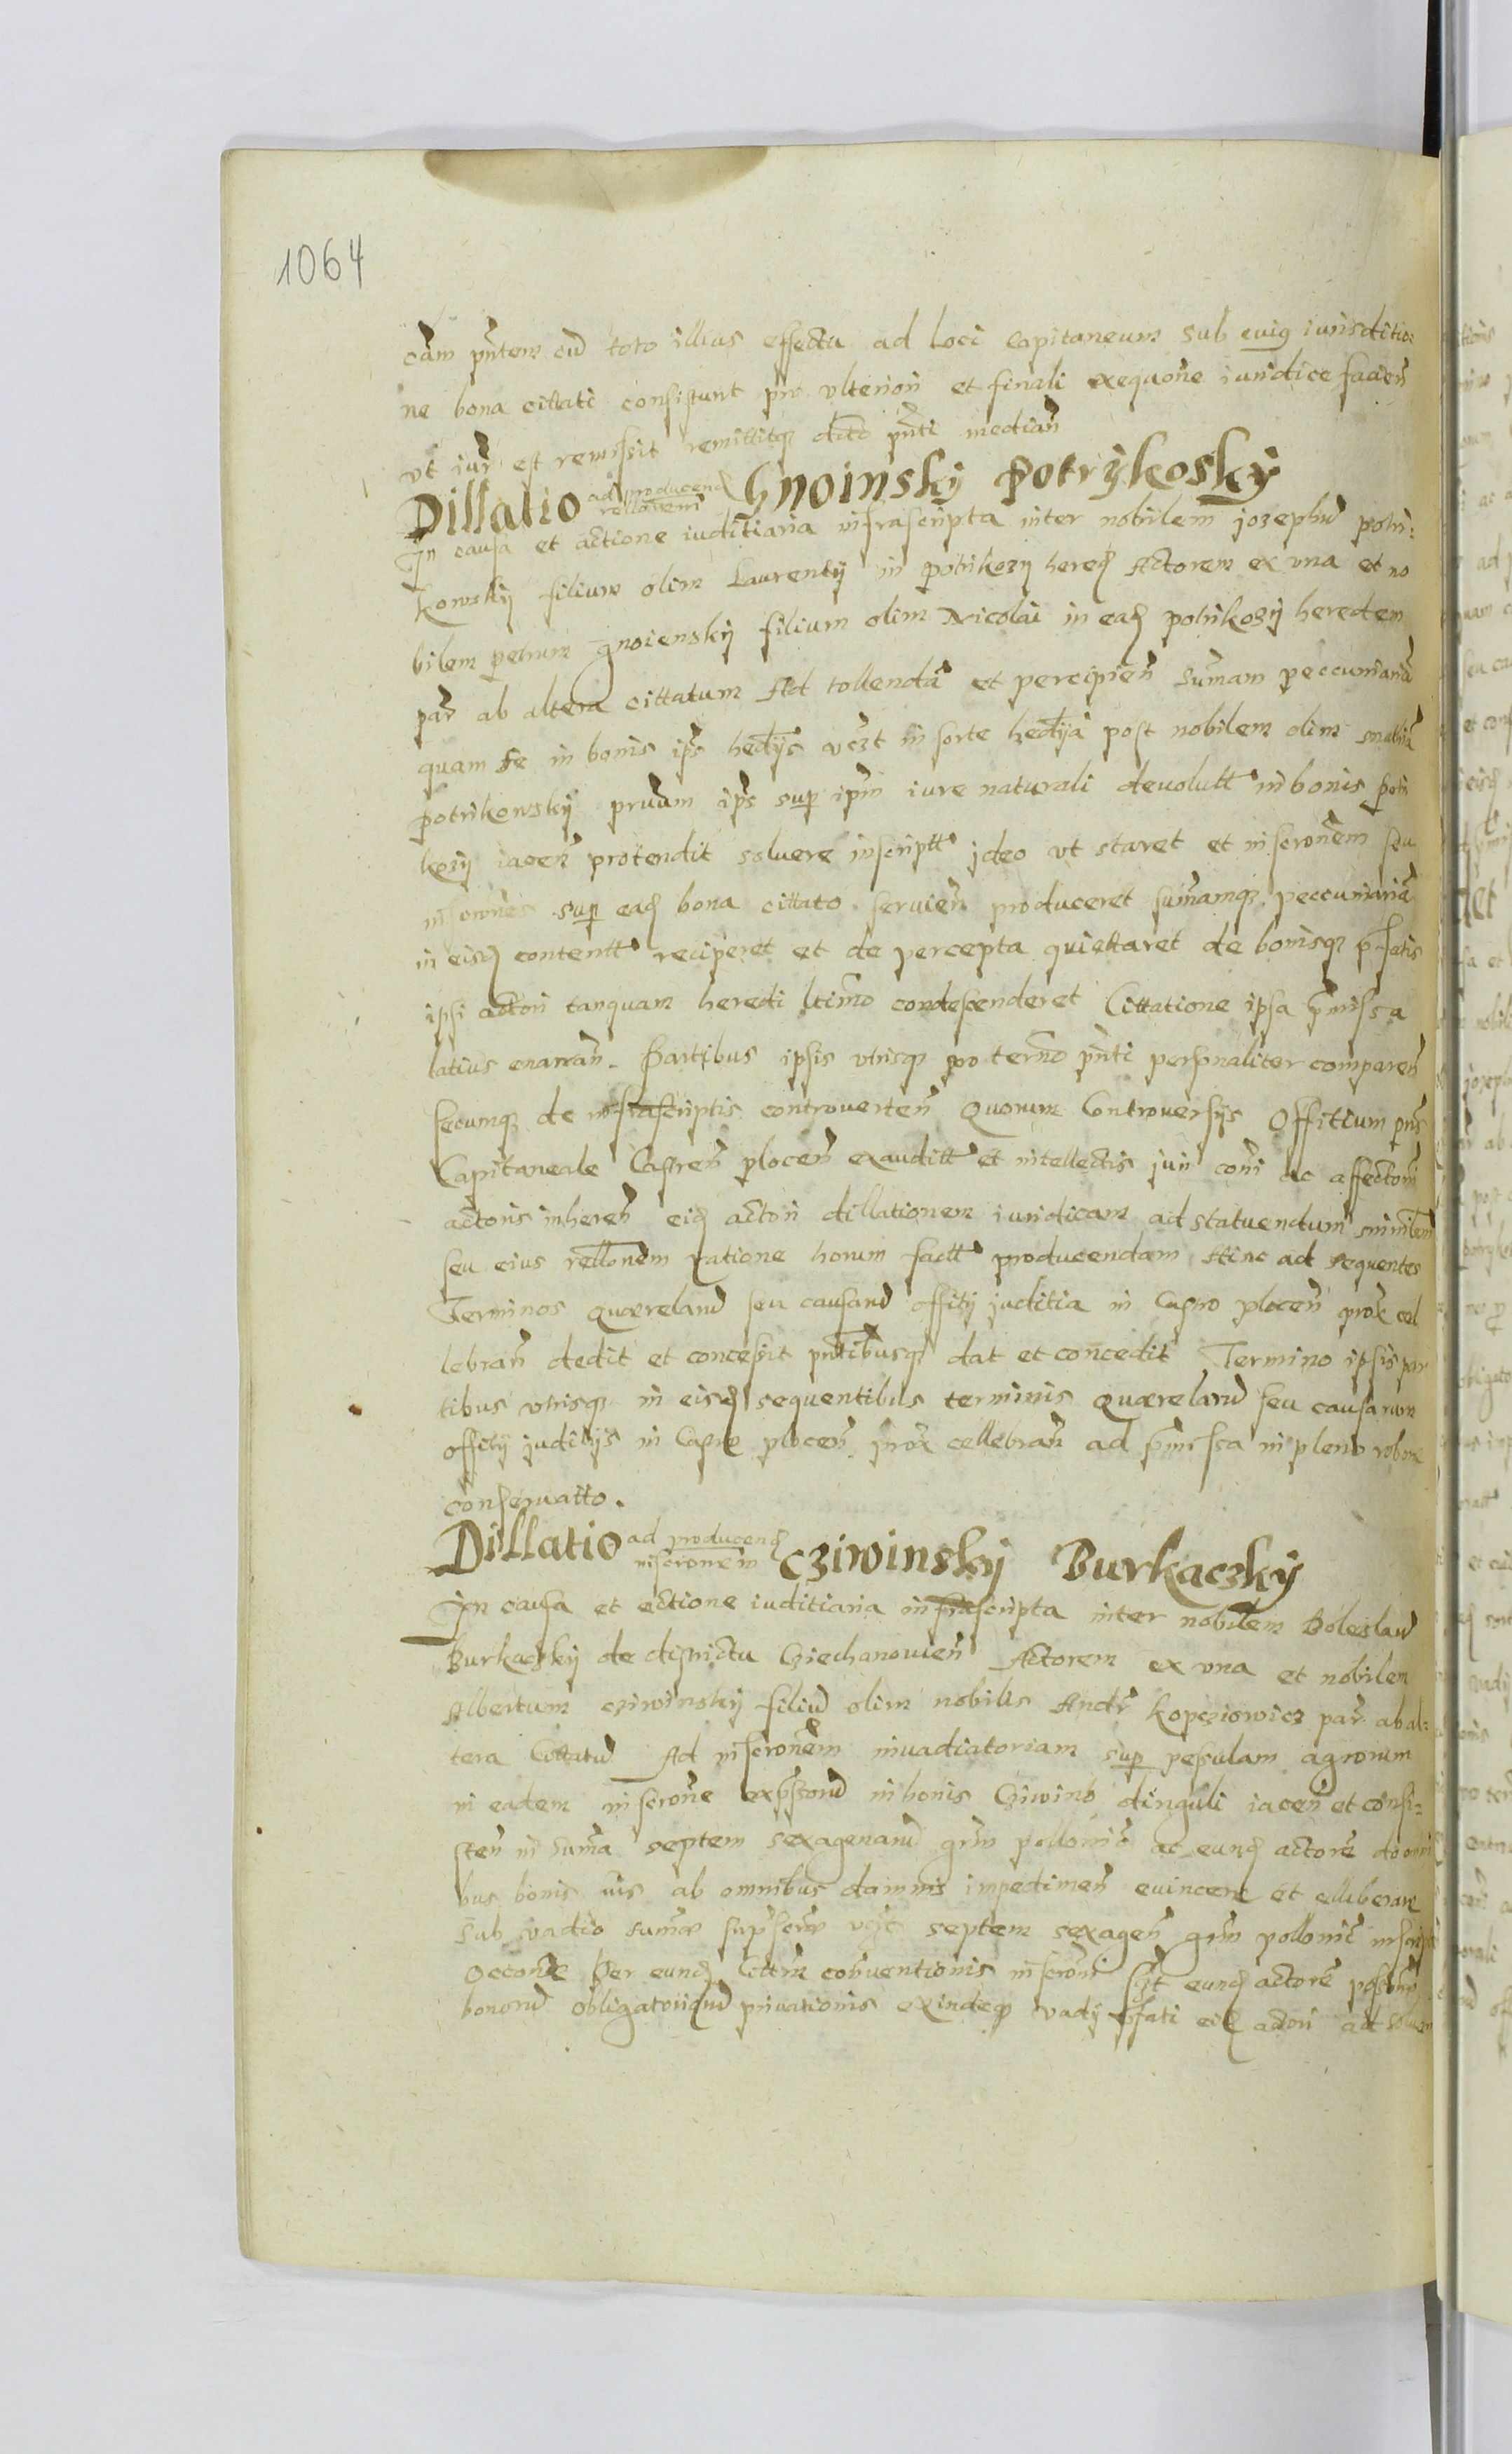 1064
cam pntem cu toto illius effectu ad loci Capitaneum sub cuiq iurisditio
ne bona cittati consistunt pro ulteriori et finali exequone iuridice facien
ut iur est remissit remittitq dicto pnti median
Dillatio ad producend rellonem Gnoinsky Potrykosky
In causa et actione iuditiaria infrascripta inter nobilem jozephu potri:
kowskij filium olim Laurentij in potrikozij hered Actorem ex una et no
bilem petrum gnoienskij filium olim Nicolai in ead potrikozij heredem
par ab altera cittatum Ad tollenda et percipien sumam peccuniaria
quam se in bonis ips in sorte post nobilem olim
potrikowskij ips sup ipm iure naturali devolutt in bonis potri
kozij iacen protendit solvere inscriptt jdeo ut staret et inscronem seu
inscrones sup ead bona cittato servien produceret sumamq peccuniaria
in eisd contentt reciperet et de percepta quiettaret de bonisq pfatis
ipsi actori tanquam heredi ltimo condescenderet Cittatione ipsa pmissa
latius enarran. Partibus ipsis utrisq pro termo pnti personaliter comparen
secumq de infrascriptis controverten Quorum Controversijs Offitium pns
Capitaneale Castren plocen exauditt et intellectis juri coni ac affectoni
actoris inheren eid actori dillationem iuridicam ad statuendum
seu eius rellonem ratione horum factt producendam Hinc ad sequentes
Terminos Quaerelaru seu causaru offitij juditia in Castro plocen prox cel
lebran dedit et concessit pntibusq dat et concedit Termino ipsis par
tibus utrisq in eisd sequentibus terminis Quaerelaru seu causarum
offitij juditijs in Castro plocen prox cellebran ad pmissa in pleno robore
conservatto.
Dillatio ad producend inscronem Cziwinskij Burkaczkij
In causa et actione iuditiaria infrascripta inter nobilem Boleslau
Burkaczkij de districtu Cziechanovien Actorem ex una et nobilem
Albertum cziwinskij filiu olim nobilis Andr kopcziowicz par ab al:
tera Cittatu Ad inscronem invadiatoriam sup pesulam agrorum
in eadem inscrone expssoru in bonis Cziwino dinguli iacen et consi:
sten in suma septem sexagenaru grm pollonic ac eund actore
bus bonis ab omnibus damnis impedimen evincere et elliberare
sub vadio sumae supscrae vczt septem sexagen grm pollonic
Occone Per eund Cittm conventionis inscroni eund actore
bonoru obligatoriaru privationis exindeq vadij pfati eid actori ad